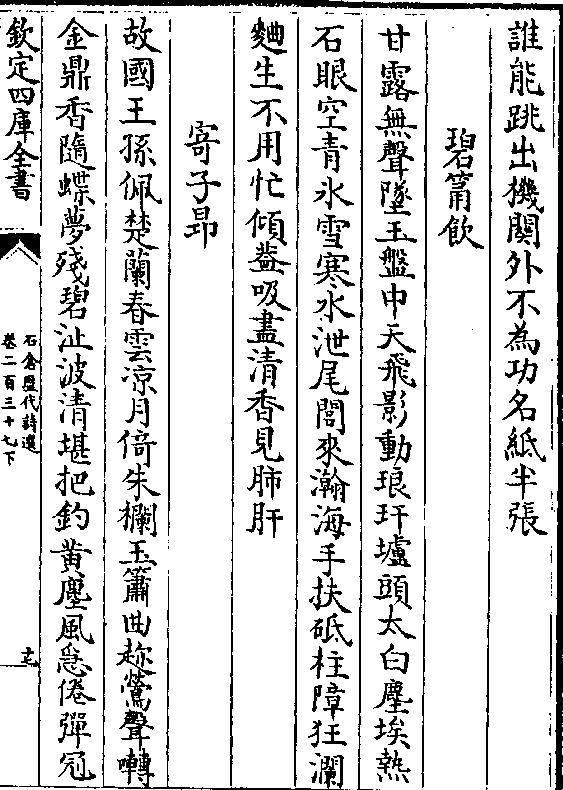 誰能跳出機關外不為功名紙半張
碧筩飲
甘露無聲墜玉盤中天飛影動琅玕壚頭太白塵埃熱
石眼空青氷雪寒水泄尾閭來瀚海手扶砥柱障狂瀾
麯生不用忙傾葢吸盡清香見肺肝
寄子昻
故國王孫佩楚蘭春雲凉月倚朱欄玉簫曲趂鶯聲囀
金鼎香隨蝶夢殘碧沚波清堪把釣黄塵風急倦彈冠
欽定四庫全書
石倉歴代詩選
卷二百三十七下